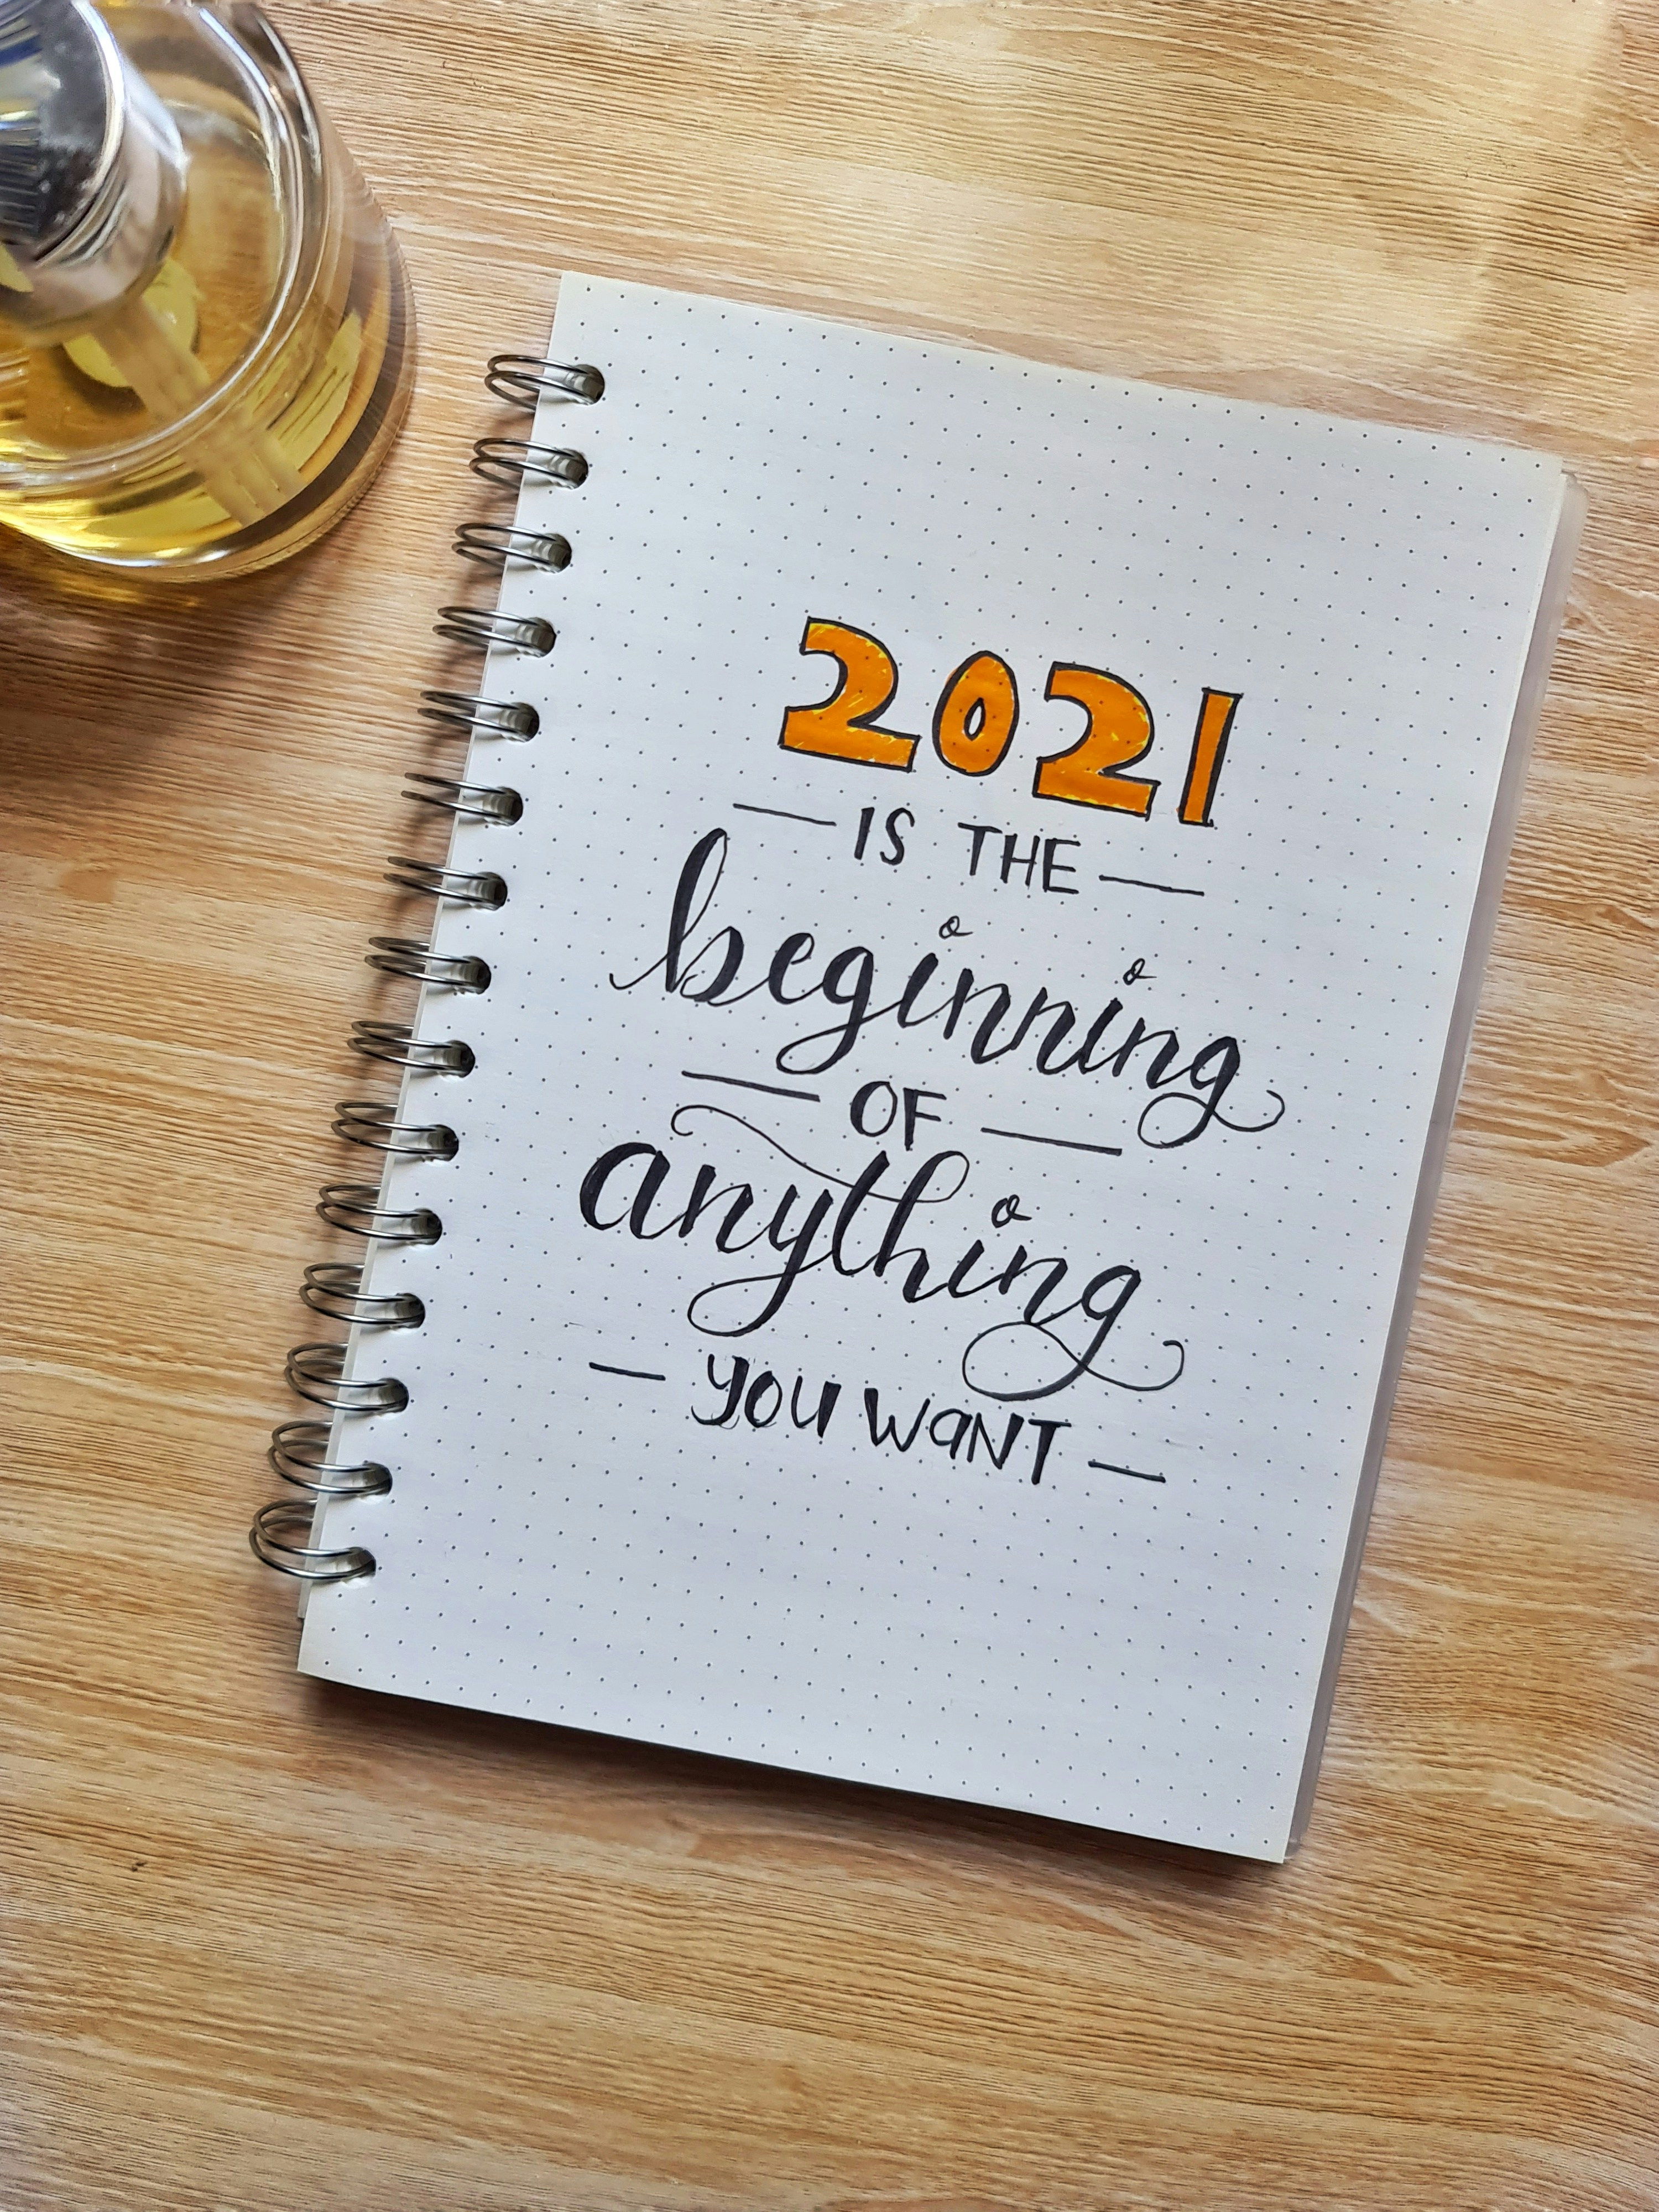 2021
— IS THE —
beginning
— OF —
anything
— YOU WaNT —